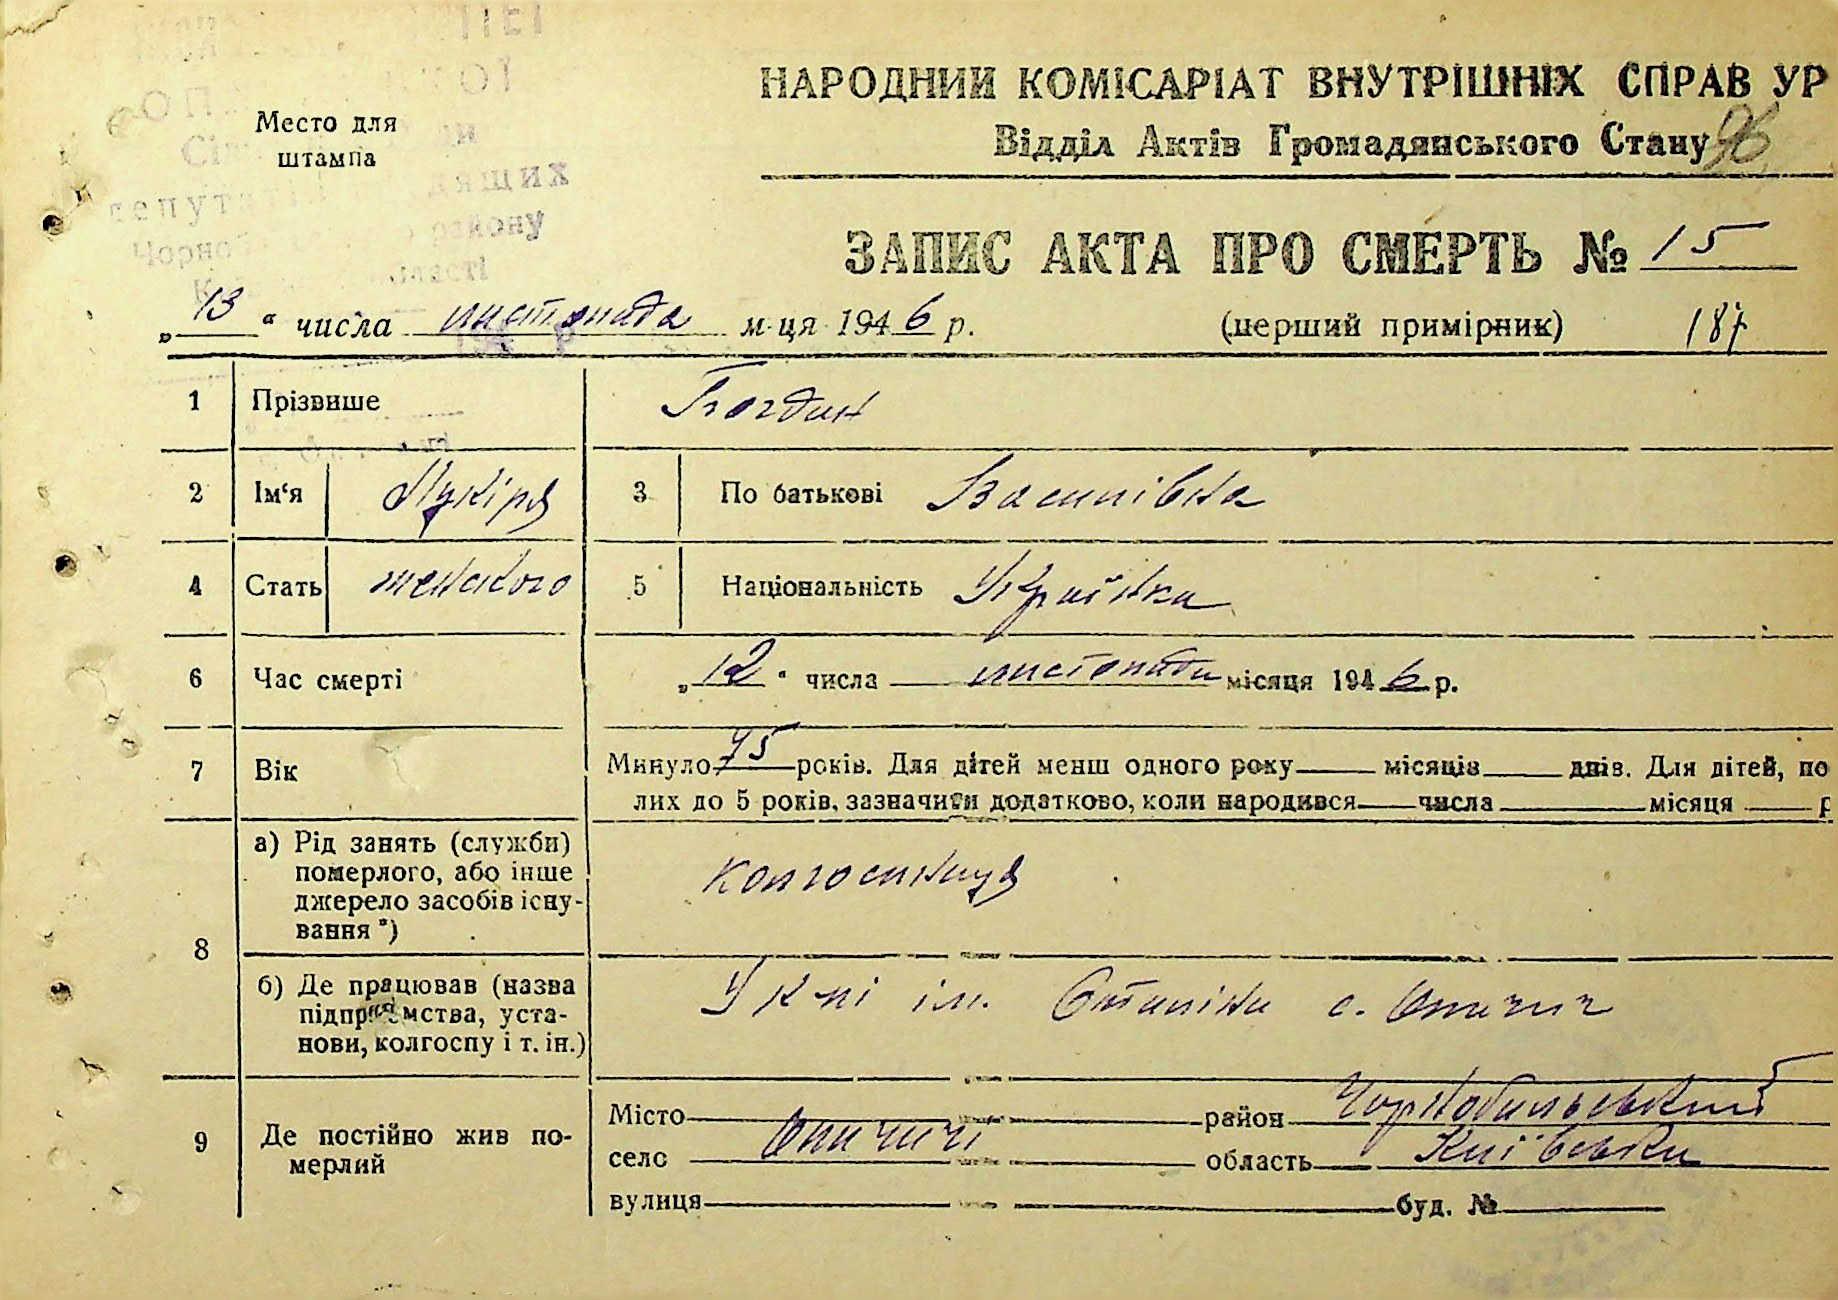 Место для
штампа
НАРОДНИЙ КОМІСАРІАТ ВНУТРІШНІХ СПРАВ УР
Відділ Актів Громадянського Стану 96
депутатів трудящих
району
області
ЗАПИС АКТА ПРО СМЕРТЬ № 15
„13“ числа листопада м-ця 1946 р. (перший примірник) 187
1 Прізвише Богдан
2 Ім‘я 3 По батькові Василівна
4 Стать женského 5 Національність Українка
6 Час смерті „12“ числа листопада місяця 1946 р.
7 Вік Минуло 75 років. Для дітей менш одного року місяців днів. Для дітей, по
лих до 5 років, зазначити додатково, коли народився числа місяця р
8 а) Рід занять (служби)
померлого, або інше
джерело засобів існу-
вання *)
колгоспниця
б) Де працював (назва
підприємства, уста-
нови, колгоспу і т. ін.)
У к-пі ім. Сталіна с. Опачич
9 Де постійно жив по-
мерлий
Місто район Чорнобильський
село Опачичі область Київська
вулиця буд. №